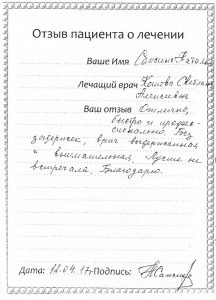 Отзыв пациента о лечении
Ваше Имя
Лечащий врач Светлана
Алексеевна
Ваш отзыв Отлично,
быстро и профес-
сионально. Без
задержек, врач выдержанная
и внимательная, Лучше не
встречала. Благодарю.
Дата: 12.04.17 Подпись: